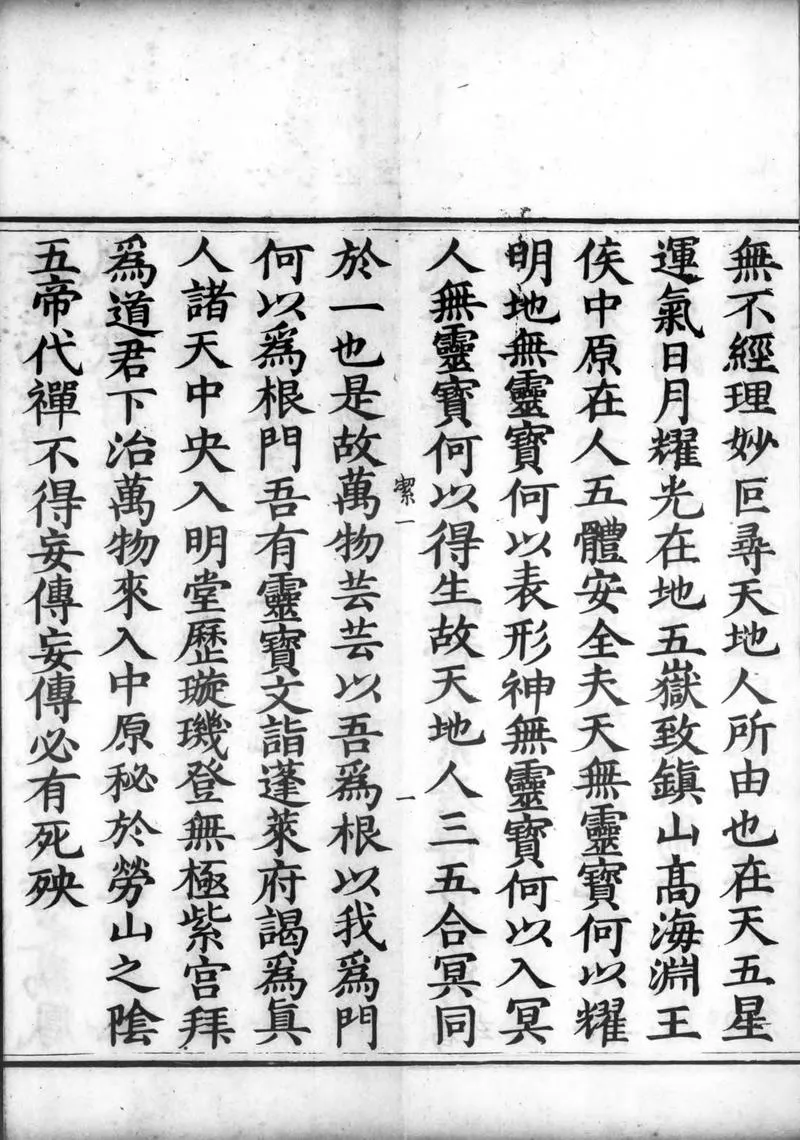 無不經理妙叵尋天地人所由也在天五星
運氣日月耀光在地五嶽致鎮山高海淵王
侯中原在人五體安全夫天無靈寶何以耀
明地無靈寶何以表形神無靈寶何以入冥
人無靈寶何以得生故天地人三五合冥同
絜一
一
於一也是故萬物芸芸以吾為根以我為門
何以為根門吾有靈寶文詣蓬萊府謁為真
人諸天中央入明堂歷璇璣登無極紫宮拜
為道君下治萬物來入中原秘於勞山之陰
五帝代禪不得妄傳妄傳必有死殃